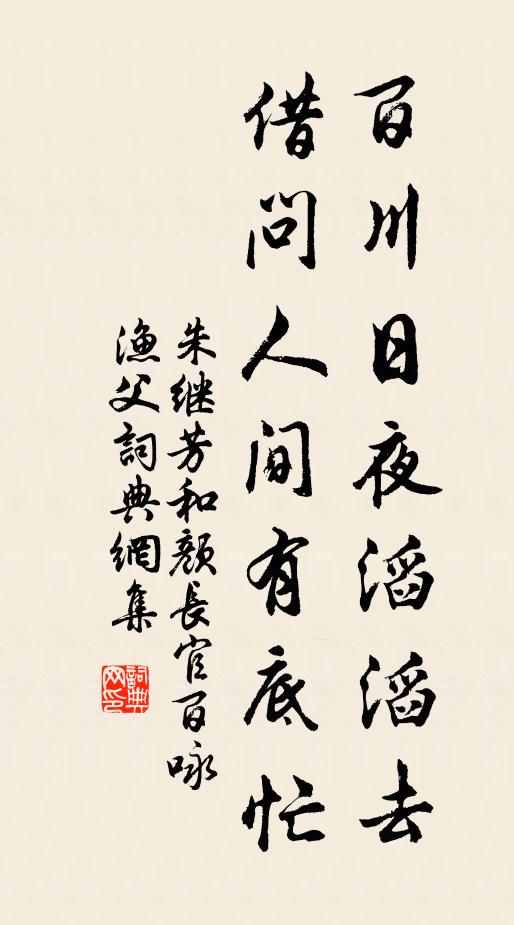 百川日夜滔滔去
借问人间有底忙
朱继芳和颜長官百咏
漁父詞典網集
詞典网印